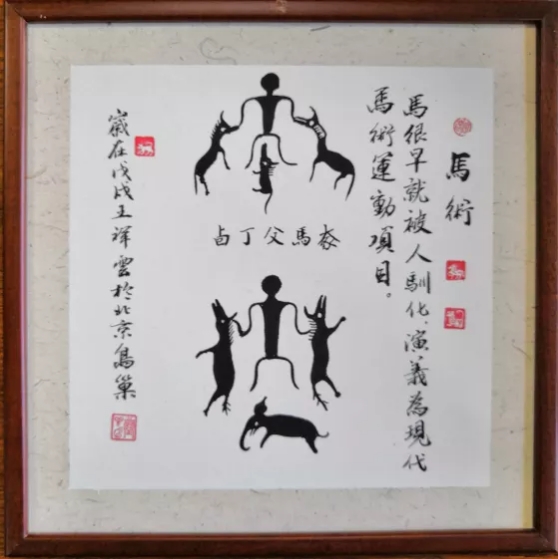 馬術
馬很早就被人馴化、演義為現代
馬術運動項目。
馬父丁卣
歲在戊戌王祥雲於北京鳥巢